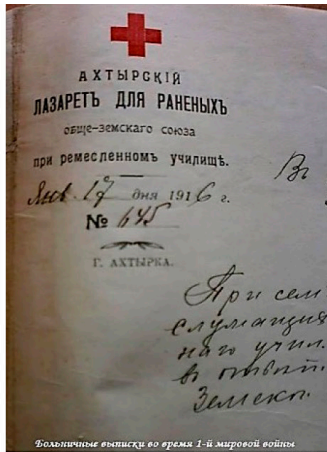 АХТЫРСКІЙ
ЛАЗАРЕТЪ ДЛЯ РАНЕНЫХЪ
обще-земскаго союза
при ремесленномъ училищѣ.
Въ
Янв 17 дня 1916 г.
№ 645
Г. АХТЫРКА.
При сем
наго учил.
в
Земско
Больничные выписки во время 1-й мировой войны